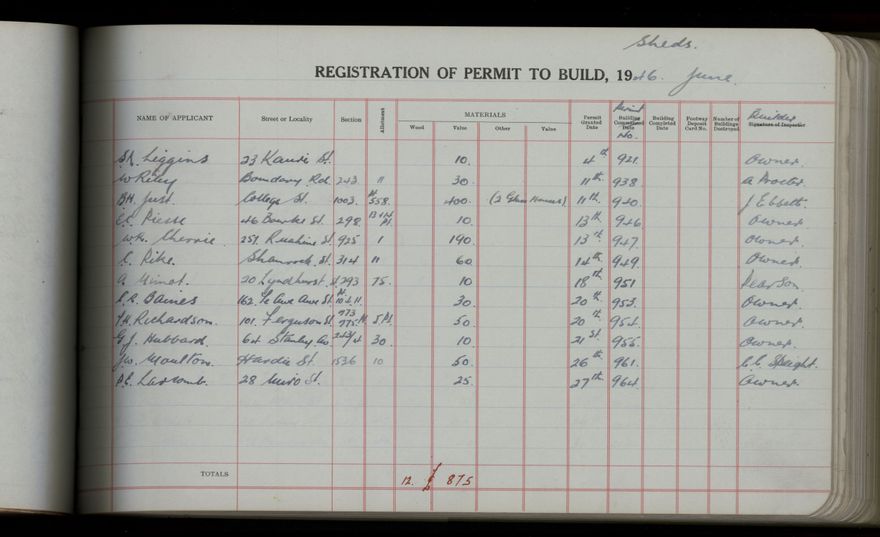 Sheds.
REGISTRATION OF PERMIT TO BUILD, 1946. June.
NAME OF APPLICANT Street or Locality Section Allotment MATERIALS Wood Value Other Value Permit Granted Date Permit Building Commenced Date No. Building Completed Date Footway Deposit Card No. Number of Buildings Destroyed Builder Signature of Inspector
S.R. Liggins 23 Kauri St. 10. 4th 921. Owner.
W Riley Boundary Rd. 243. 11 30. 11th 938 A Procter.
B.H. Just. College St. 1003. Pt 558. 400. (2 Glass Houses) 11th. 940. J Ebbett.
46 Bourke St. 298. 13 & 14 Pt. 10. 13th 946 Owner.
W.R. Cherrie. 259. Ruahine St. 925 1 190. 13th. 947. Owner.
C. Pike. Shamrock. St. 314 11 60. 14th. 949. Owner.
A. 20 Lyndhurst. St. 293 75. 10 18th 951 Pearson.
C.R. Barnes 162. Te Awe Awe St. Pt. 10 & 11. 30. 20th 953. Owner.
F.H. Richardson. 101. Ferguson St. 973 975. Pt. 5 Pt. 50. 20th. 954. Owner.
G.J. Hubbard. 64 Stanley Av. 30. 10 21st. 955. Owner.
J.W. Moulton. Hardie St. 1536 10 50. 26th 961. C.C. Speight.
P.C. Larcomb. 28 Miro St. 25. 27th. 964. Owner.
TOTALS 12. £ 875